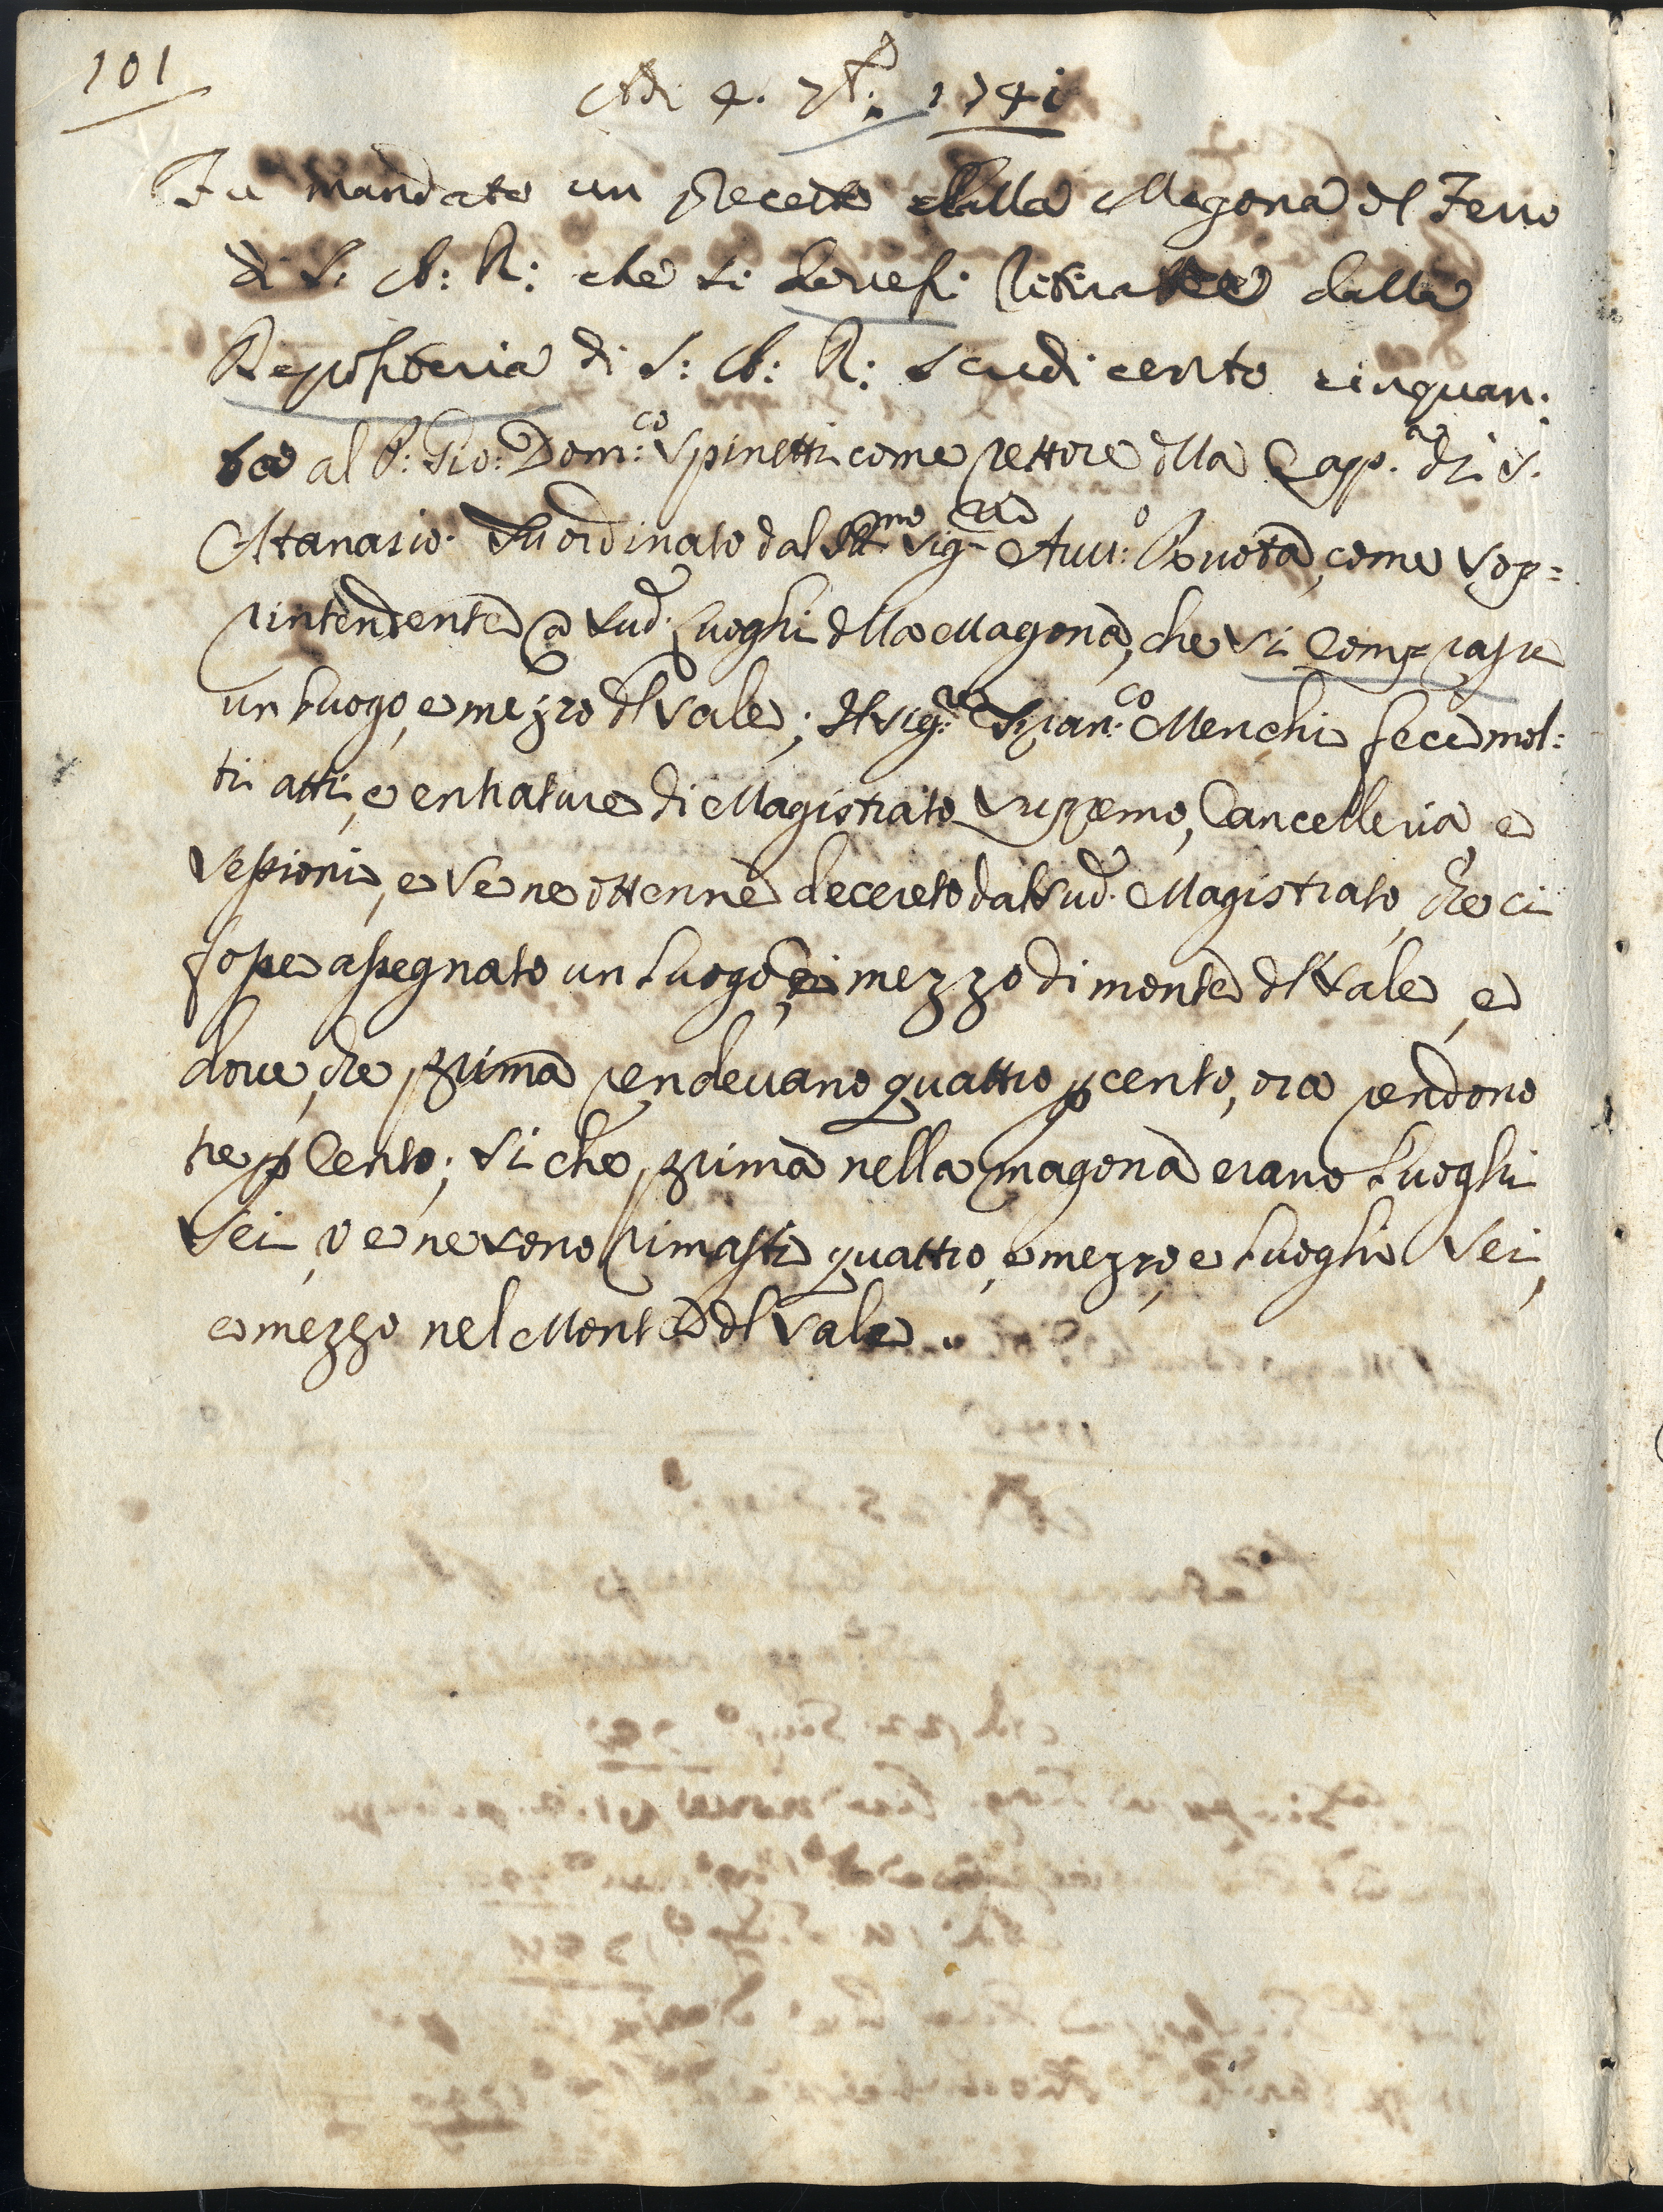 101
Adi 4. 7bre: 1741
Fu mandato un precetto dalla Magona dl Ferro
di S: A: R: che si dovessi ritirare dalla
Depositeria di S: A: R: scudi cento cinquan:
ta al P: Gio: Dom:co Spinetti come rettore dlla Capp.a di S.
Atanasio. Fu ordinato dal Ill.mo Sig.re Auu:o come sop=
rintendente a sud. Luoghi dlla Magona, che si comprasse
un Luogo, e mezzo dl Sale; Il Sig:re Fran:co Menchi fece mol:
ti atti, e entrature di Magistrato Supremo, Cancelleria e
Sessioni, e se ne ottenne decreto dal sud. Magistrato, che ci
fosse assegnato un Luogo, e mezzo di monte dl Sale, e
doue, che prima rendeuano quattro p cento, ora rendono
tre p Cento; si che, prima nella magona erano Luoghi
sei, ve ne sono rimasti quattro, e mezzo, e Luoghi sei,
e mezzo nel Monte dl Sale.